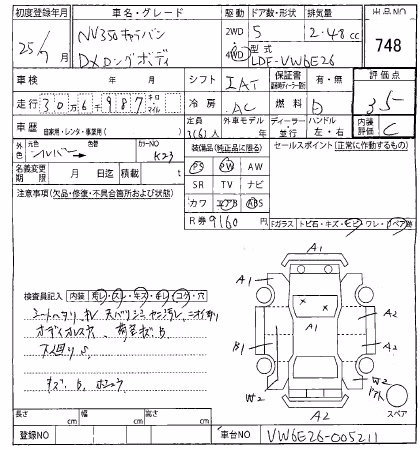 初度登録年月 車名・グレード 駆動 ドア数・形状 排気量 出品NO
25年/ 月 NV350キャラバン 2WD 5 2.48cc 748
DXロングボディ 4WD 型式 LDF-VW6E26
車検 年 月 シフト IAT 保証書 有・無 評価点
走行 30万6千987 キロ マイル 冷房 AC 燃料 D 3.5
車歴 自家用・レンタ・事業用( ) 定員 3(6)人 外車モデル 年 ディーラー・並行 ハンドル 左・右 内装評価 C
外色 元色 シルバー 色替 カラーNO K23 装備品(純正品に限る) セールスポイント(正常に作動するもの)
名義変更期限 月 日迄 積載 t PS PW AW
注意事項(欠品・修復・不具合箇所および状態) SR TV ナビ
カワ エアB ABS
R券 9160 円 Fガラス トビ石・キズ・ヒビワレ・リペア跡
検査員記入 内装 汚レ・スレ・キズ・キレ・コゲ・穴
シートヘタリ
オーディオレス穴
下廻りS
キズ B
A1
A1
A2
A1
B1
A2
W2
W2
A2
スペア
長さ cm 幅 cm 高さ cm
登録NO 車台NO VW6E26-005211